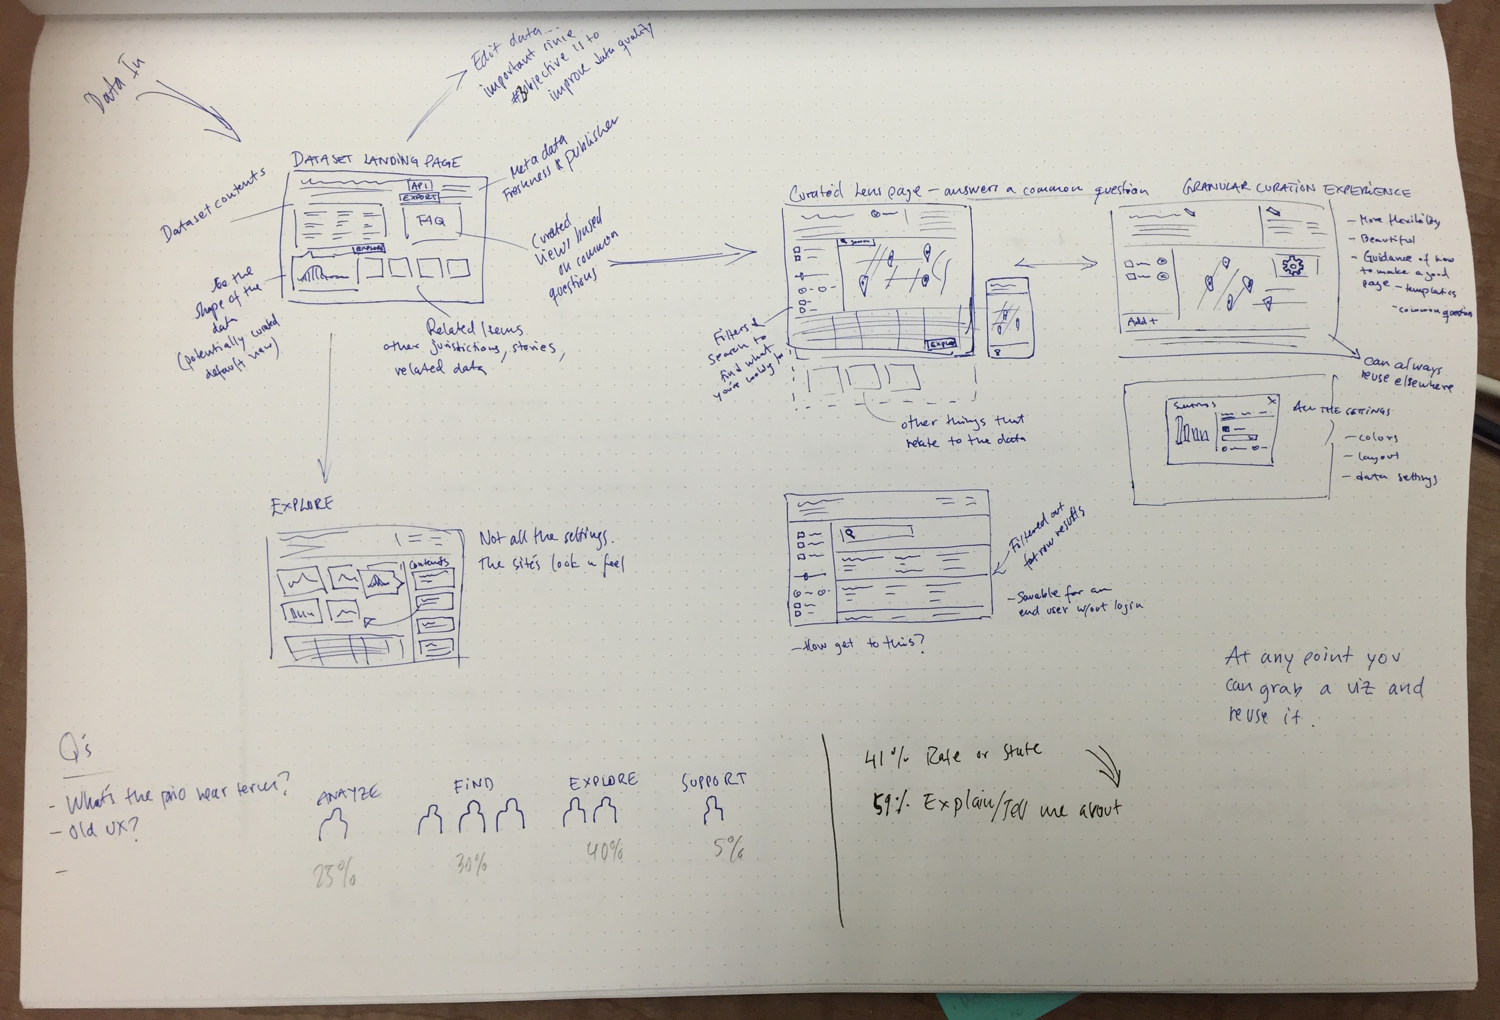 Data In
Edit data...
important since
#3 objective is to
improve data quality
DATASET LANDING PAGE
API
EXPORT
FAQ
EXPLORE
Meta data
Freshness & publisher
Dataset contents
Curated
views based
on common
questions
See the
shape of the
data
(potentially curated
default view)
Related Items
other jurisdictions, stories,
related data
Curated Lens page – answers a common question
EXPLORE
Filters &
search to
find what
you're looking for
other things that
relate to the data
GRANULAR CURATION EXPERIENCE
Add +
- More flexibility
- Beautiful
- Guidance of how
to make a good
page - templates
- common question
can always
reuse elsewhere
Settings X
ALL THE SETTINGS
- colors
- layout
- data settings
EXPLORE
Contents
Not all the settings.
The site's look n feel
Filtered out
for row results
- Savable for an
end user w/out login
- How get to this?
At any point you
can grab a viz and
reuse it.
Q's
- What's the near term?
- Old UX?
-
ANAYZE
25%
FIND
30%
EXPLORE
40%
SUPPORT
5%
41% Rate or State
59% Explain/Tell me about